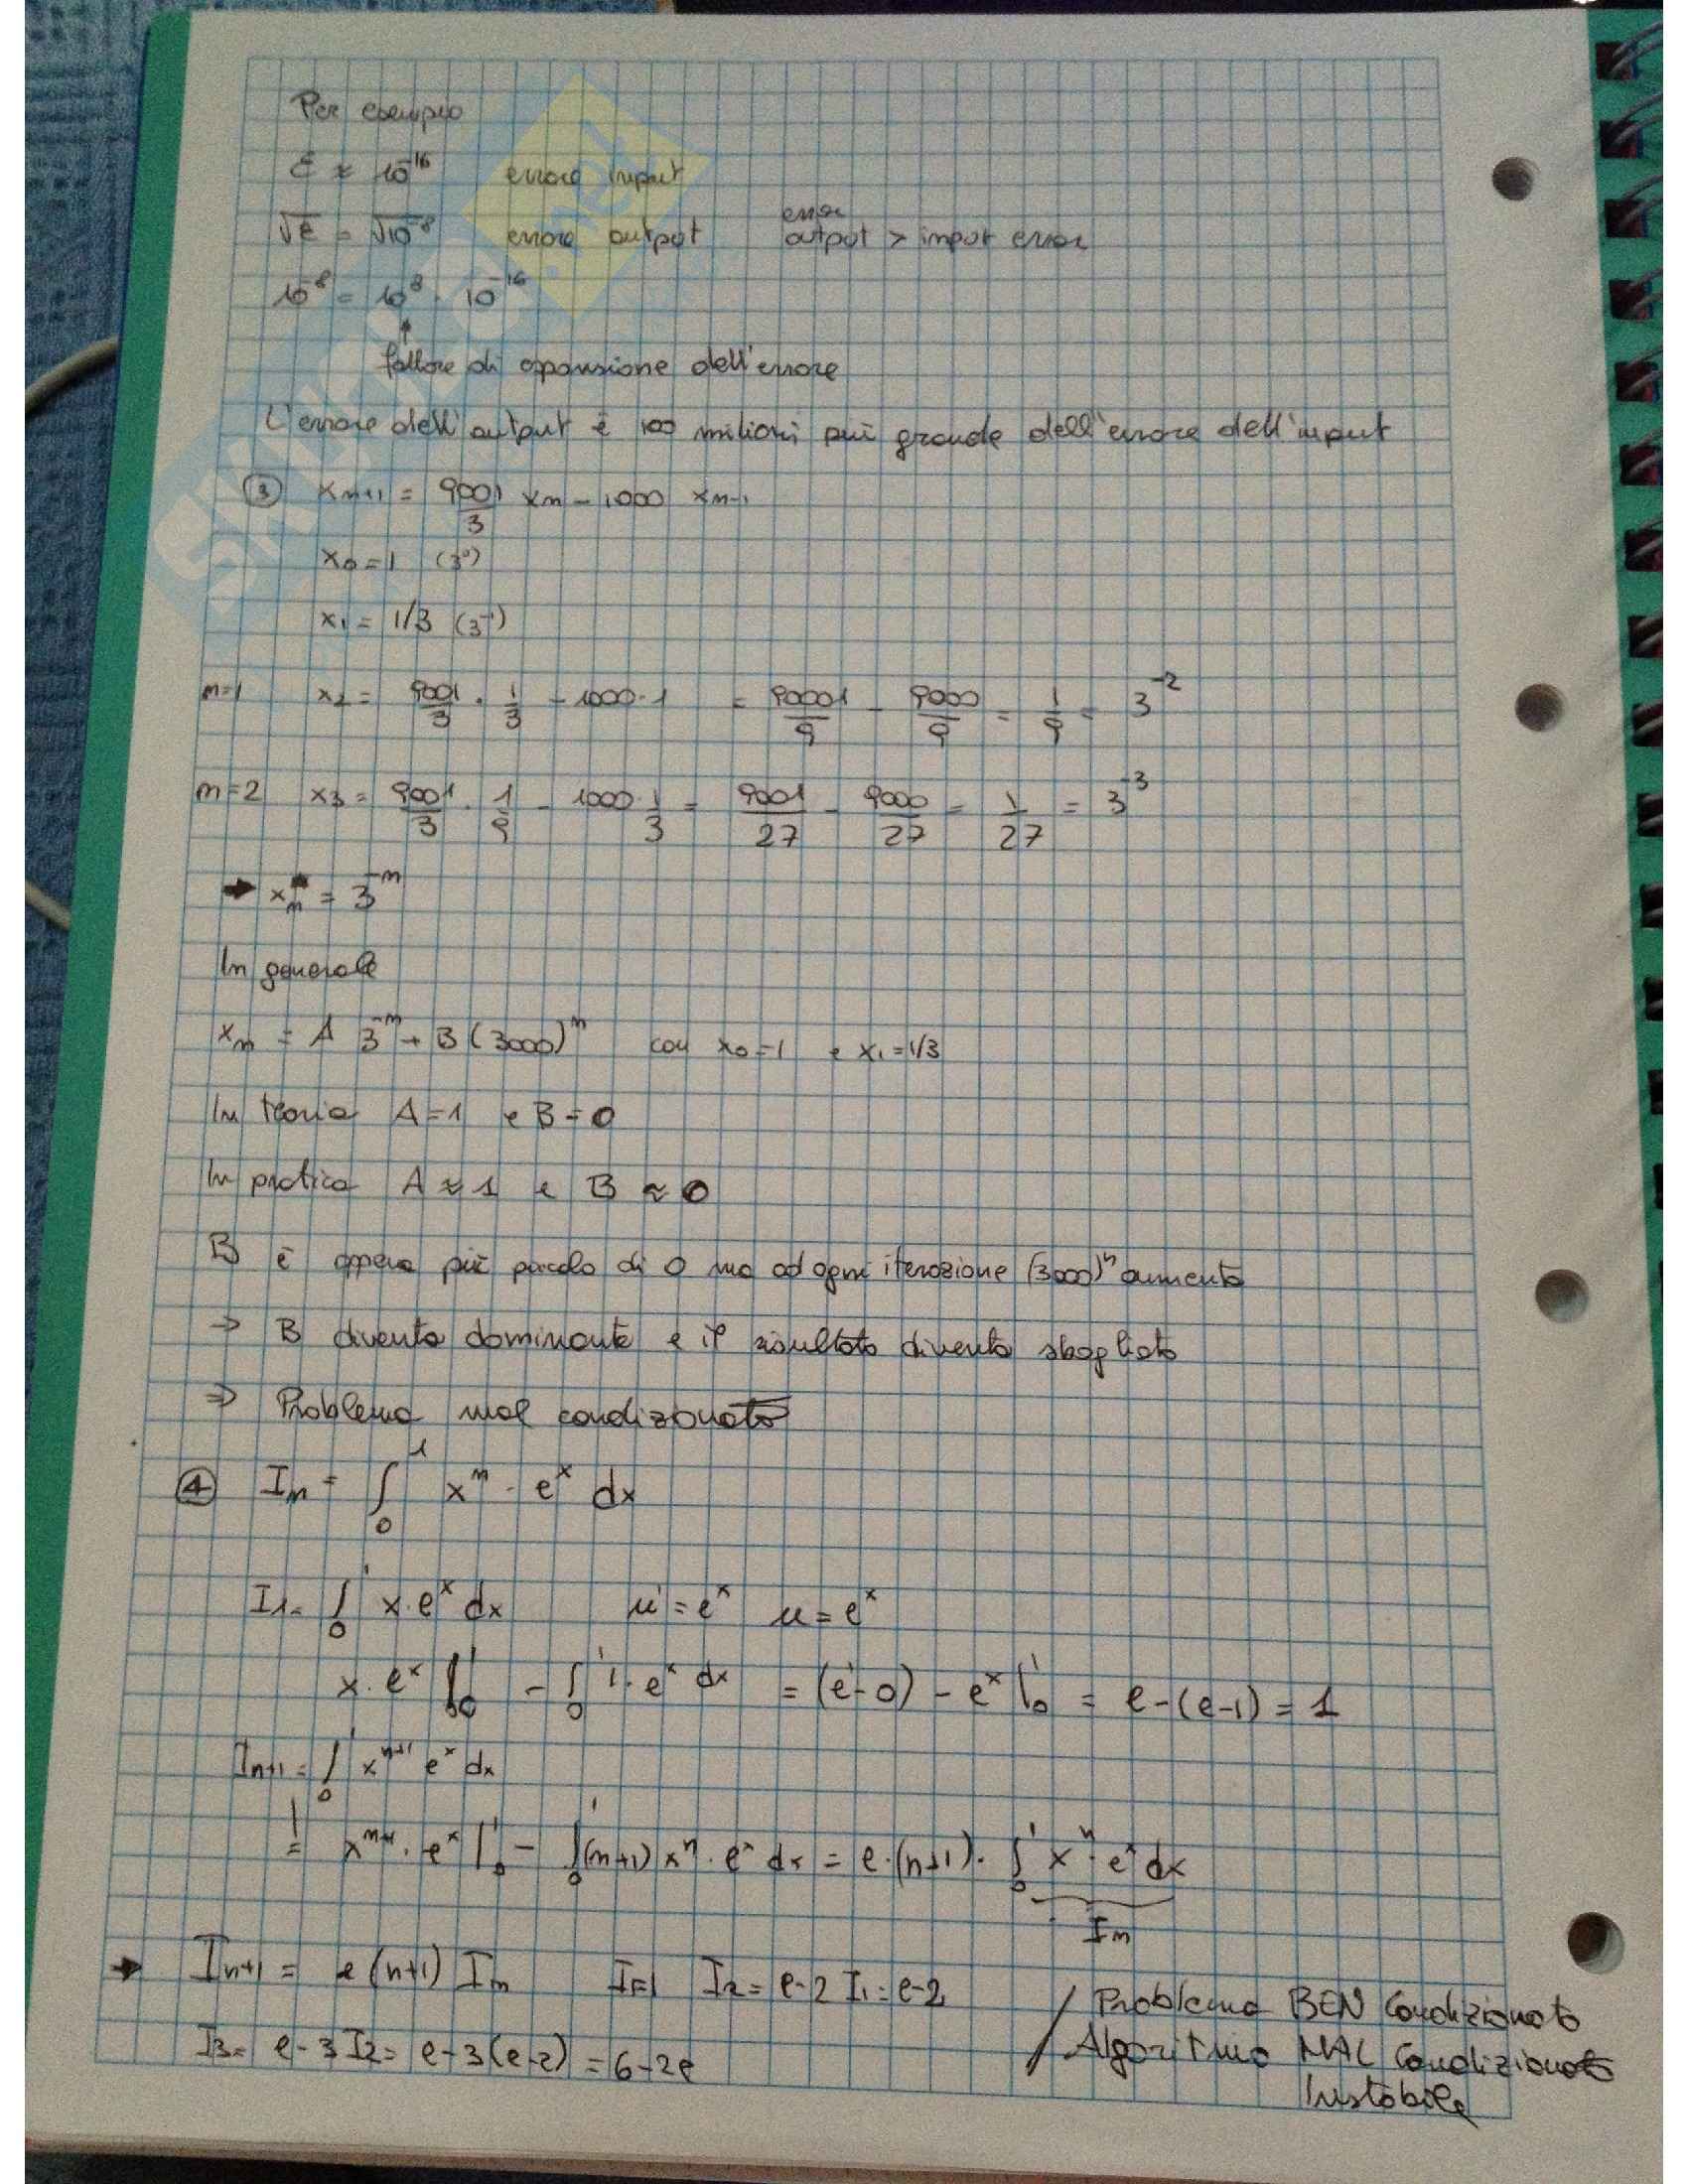 Per esempio
ε ≈ 10^-16 errore input
√ε = √10^-8 errore output error output > input error
10^-8 = 10^8 · 10^-16
↑
fattore di espansione dell'errore
L'errore dell'output è 100 milioni più grande dell'errore dell'input
③ x_{n+1} = 9001/3 x_n - 1000 x_{n-1}
x_0 = 1 (3^0)
x_1 = 1/3 (3^-1)
n=1 x_2 = 9001/3 · 1/3 - 1000·1 = 90001/9 - 9000/9 = 1/9 = 3^-2
n=2 x_3 = 9001/3 · 1/9 - 1000·1/3 = 9001/27 - 9000/27 = 1/27 = 3^-3
→ x_n = 3^-n
In generale
x_n = A 3^-n + B (3000)^n con x_0=1 e x_1=1/3
In teoria A=1 e B=0
In pratica A≈1 e B≈0
B è appena più piccolo di 0 ma ad ogni iterazione (3000)^n aumenta
→ B diventa dominante e il risultato diventa sbagliato
⇒ Problema mal condizionato
④ I_n = ∫_0^1 x^n · e^x dx
I_1 = ∫_0^1 x·e^x dx u' = e^x u = e^x
x·e^x |_0^1 - ∫_0^1 1·e^x dx = (e^1-0) - e^x |_0^1 = e-(e-1) = 1
I_{n+1} = ∫_0^1 x^{n+1} e^x dx
= x^{n+1}·e^x |_0^1 - ∫_0^1 (n+1) x^n · e^x dx = e·(n+1)· ∫_0^1 x^n · e^x dx
I_n
→ I_{n+1} = e (n+1) I_n I=1 I_2 = e-2 I_1 = e-2
I_3 = e-3 I_2 = e-3(e-2) = 6-2e
Problema BEN Condizionato
Algoritmo MAL Condizionato
Instabile